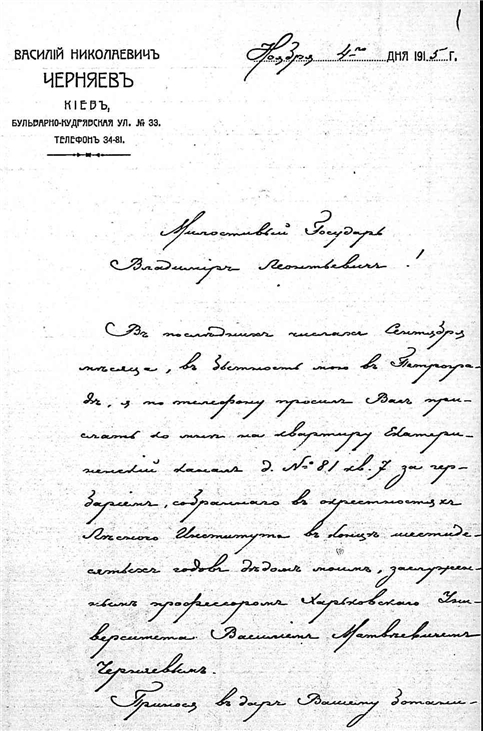 1
ВАСИЛІЙ НИКОЛАЕВИЧЪ
ЧЕРНЯЕВЪ
КІЕВЪ,
БУЛЬВАРНО-КУДРЯВСКАЯ УЛ. № 33.
ТЕЛЕФОНЪ 34-81.
Ноября 4-го ДНЯ 1915 Г.
Милостивый Государь
Владиміръ Леонтьевичъ!
Въ послѣднихъ числахъ Сентября
мѣсяца, въ бытность мою въ Петрогра-
дѣ, я по телефону просилъ Васъ при-
слать ко мнѣ на квартиру Екатери-
ненскій каналъ д. № 81 кв. 7 за гер-
баріемъ, собраннаго въ окрестностяхъ
Лѣсного Института въ концѣ шестиде-
сятыхъ годовъ дѣдомъ моимъ, заслужен-
нымъ профессоромъ Харьковскаго Уни-
верситета Василіемъ Матвѣевичемъ
Черняевымъ.
Принося въ даръ Вашему ботани-